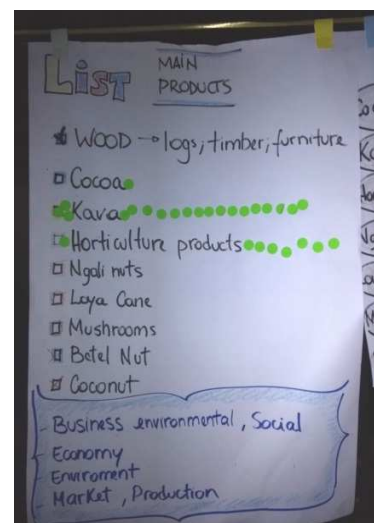 LIST MAIN
PRODUCTS
WOOD → logs, timber, furniture
Cocoa
Kava
Horticulture products
Ngali nuts
Loya Cane
Mushrooms
Betel Nut
Coconut
Business environmental, Social
- Economy
- Enviroment
- Market, Production